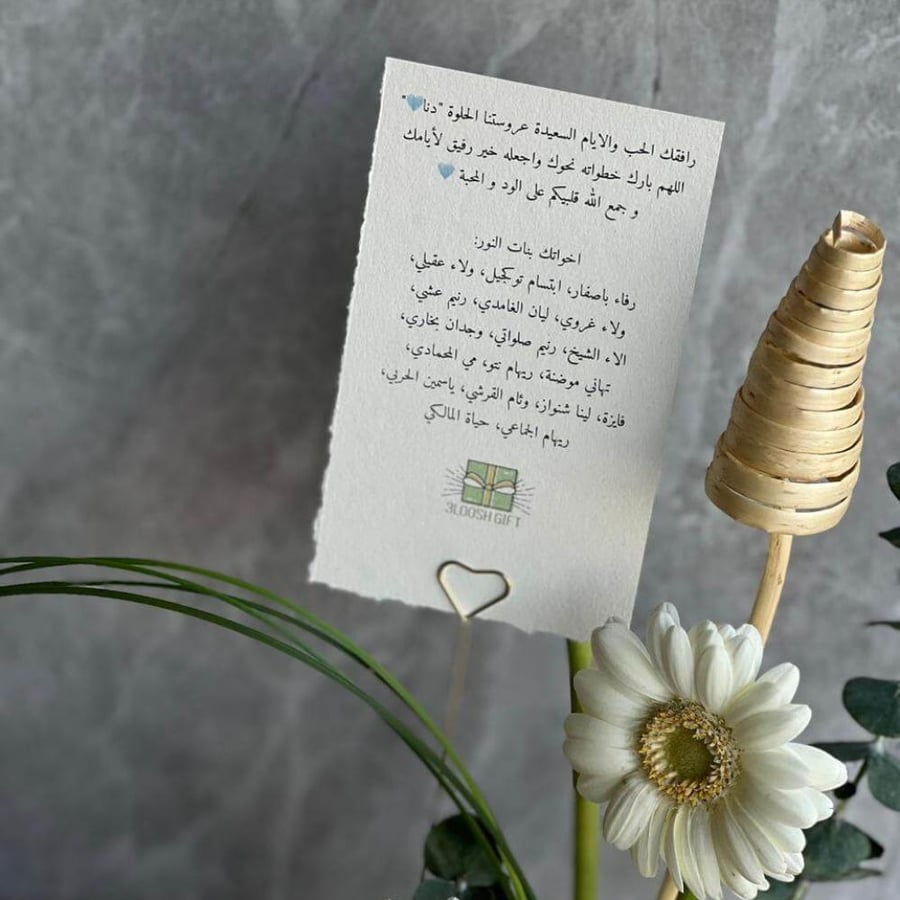 رافقك الحب والايام السعيدة عروستنا الحلوة "دنا🩵"
اللهم بارك خطواته نحوك واجعله خير رفيق لأيامك
و جمع الله قلبيكم على الود و المحبة 🩵
اخواتك بنات النور:
رفاء باصفار، ابتسام توكجيل، ولاء عقيلي،
ولاء غروي، ليان الغامدي، رنيم عشي،
الاء الشيخ، رنيم صلواتي، وجدان بخاري،
تهاني موضنة، ريهام نتو، مي المحمادي،
فايزة، لينا شنواز، وئام القرشي، ياسمين الحربي،
ريهام الجماعي، حياة المالكي
3LOOSH GIFT